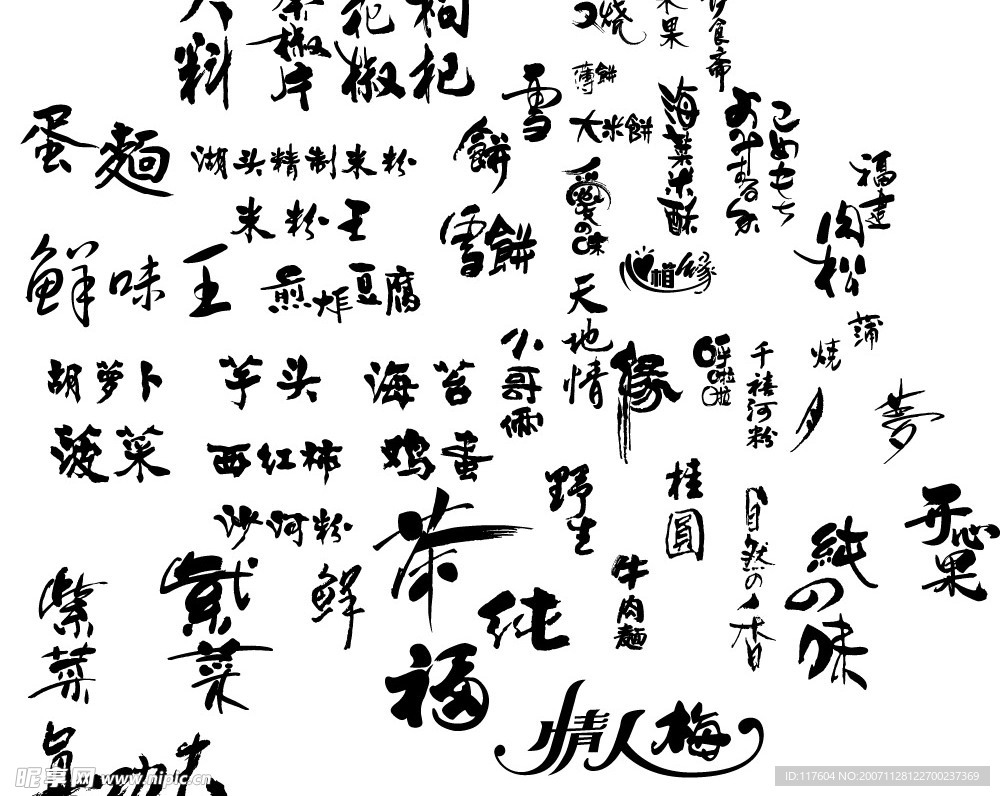 料
椒片
花椒
枸杞
烧
果
食斋
薄餅
雪
餅
大米餅
海菜米酥
こめもち
蛋麵
湖头精制米粉
福建
肉松
愛の味
米粉王
雪餅
相缘
鮮味王
煎炸豆腐
天地情
缘
小哥俩
呼啦啦
千禧河粉
烧
蒲
夢
胡萝卜
芋头
海苔
菠菜
西红柿
鸡蛋
野生
桂圓
自然の香
开心果
沙河粉
茶
純の味
紫菜
紫菜
鲜
纯
牛肉麵
福
情人梅
昵享网 www.nipic.cn
ID:117604 NO:20071128122700237369